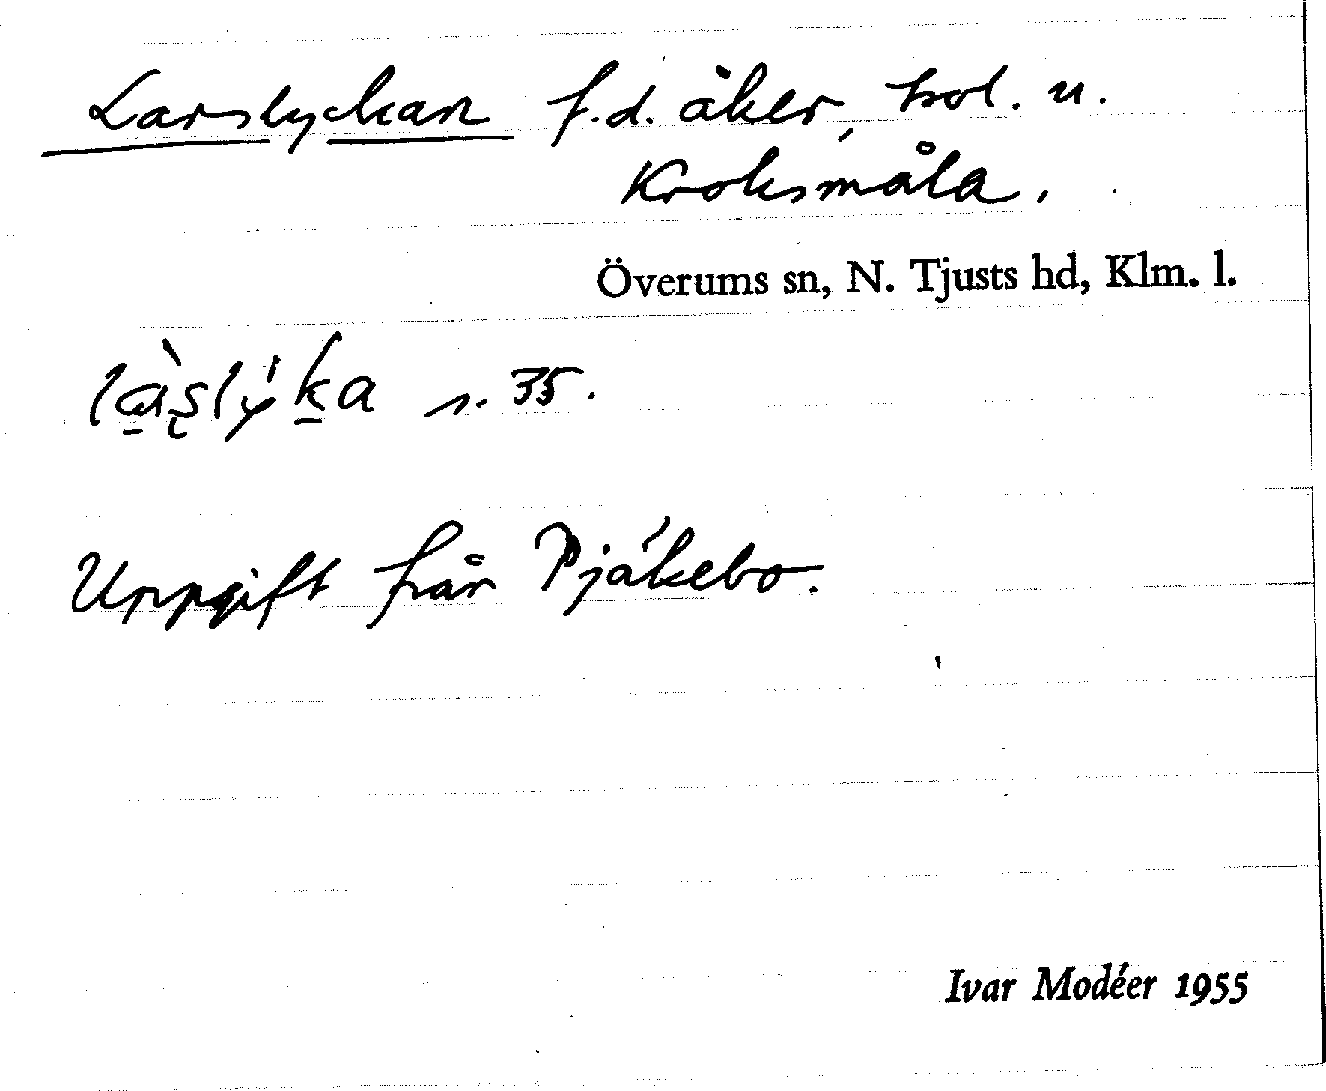 Larslyckan f.d. åker, trol. u.
Kroksmåla.
Överums sn, N. Tjusts hd, Klm. l.
là̱s̨lý̱ka s. 35.
Uppgift från Pjákebo.
Ivar Modéer 1955